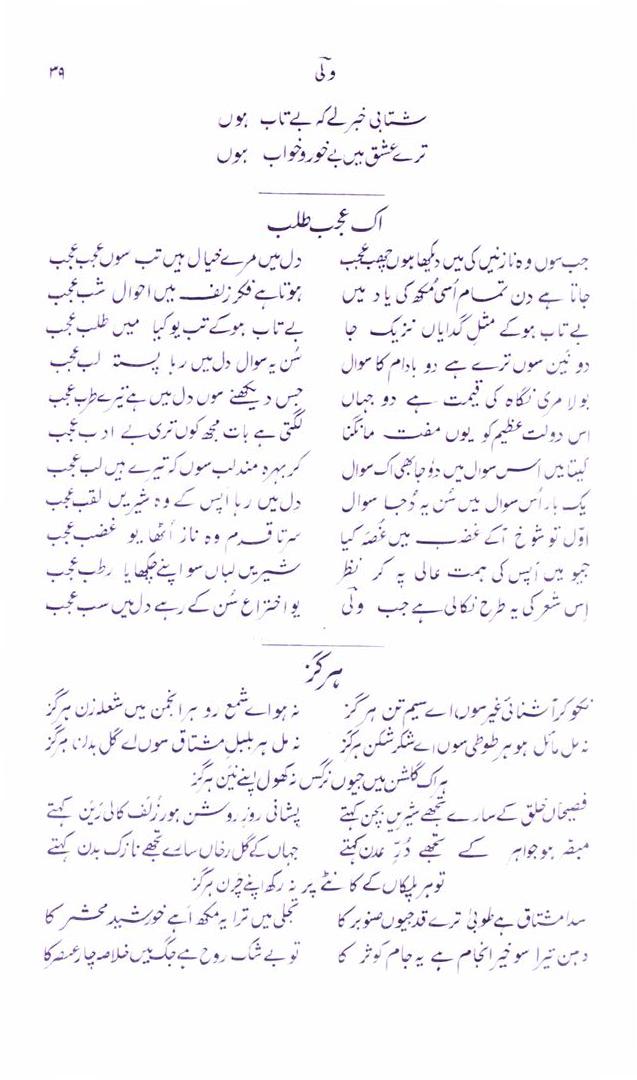 ولیؔ ۳۹
شتابی خبر لے کہ بے تاب ہوں
ترے عشق میں بے خور و خواب ہوں
اک عجب طلب
جب سوں وہ نازنیں کی میں دیکھا ہوں چھب عجب دل میں مرے خیال ہیں تب سوں عجب عجب
جاتا ہے دن تمام اُسی مُکھ کی یاد میں ہوتا ہے فکر زلف میں احوال شب عجب
بے تاب ہوکے مثلِ گدایاں نزیک جا بے تاب ہوکے تب یو کیا میں طلب عجب
دو نَین سوں ترے ہے دو بادام کا سوال سُن یہ سوال دل میں رہا پستہ لب عجب
بولا مری نگاہ کی قیمت ہے دو جہاں جس دیکھنے سوں دل میں ہے تیرے طرب عجب
اس دولت عظیم کو یوں مفت مانگنا لگتی ہے بات مجھ کوں تری بے ادب عجب
کیتا ہیں اس سوال میں دوجا بھی اک سوال کر بہرہ مند لب سوں کہ تیرے ہیں لب عجب
یک بار اُس سوال میں سُن یہ دُجا سوال دل میں رہا اَپس کے وہ شیریں لقب عجب
اوّل تو شوخ آکے غضب میں غصّہ کیا سر تا قدم وہ ناز اُٹھا یو غضب عجب
جیو میں اَپس کی ہمت عالی پہ کر نظر شیریں لباں سو اپنے چکھایا رطب عجب
اِس شعر کی یہ طرح نکالی ہے جب ولیؔ یو اختراع سُن کے رہے دل میں سب عجب
ہرگز
نکو کر آشنائی غیر سوں اے سیم تن ہرگز نہ ہو اے شمع رو ہر انجمن میں شعلہ زن ہرگز
نہ مل مائل ہو ہر طوطی سوں اے شکر شکن ہرگز نہ مل ہر بلبلِ مشتاق سوں اے گل بدن ہرگز
ہر اک گلشن میں جیوں نرگس نہ کھول اپنے نَین ہرگز
فصیحاں خلق کے سارے تجھے شیریں بچن کہتے پشانی روزِ روشن ہور زُلف کالی رَین کہتے
مبصّر ہو جواہر کے تجھے دُرِّ عدن کہتے جہاں کے گل رخاں سارے تجھے نازک بدن کہتے
تو ہر پلکاں کے کانٹے پر نہ رکھ اپنے چرن ہرگز
سدا مشتاق ہے طوبیٰ ترے قد جیوں صنوبر کا تجلی میں ترا یہ مکھ اَہے خورشید محشر کا
دہن تیرا سو خیر انجام ہے یہ جام کوثر کا تو بے شک روح ہے جگ میں خلاصہ چار عنصر کا